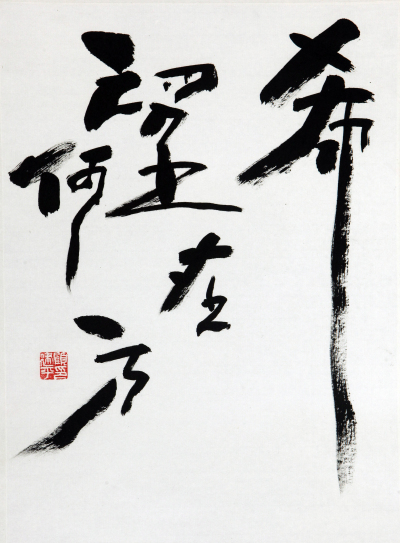 希
望在
何方